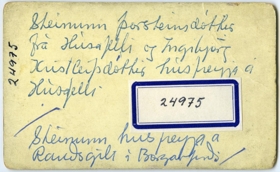 Steinunn Þorsteinsdóttir
frá Húsafelli og Ingibjörg
Kristleifsdóttir húsfreyja á
Húsafelli
24975
24975
Steinunn húsfreyja á
Rauðsgili í Borgarfirði